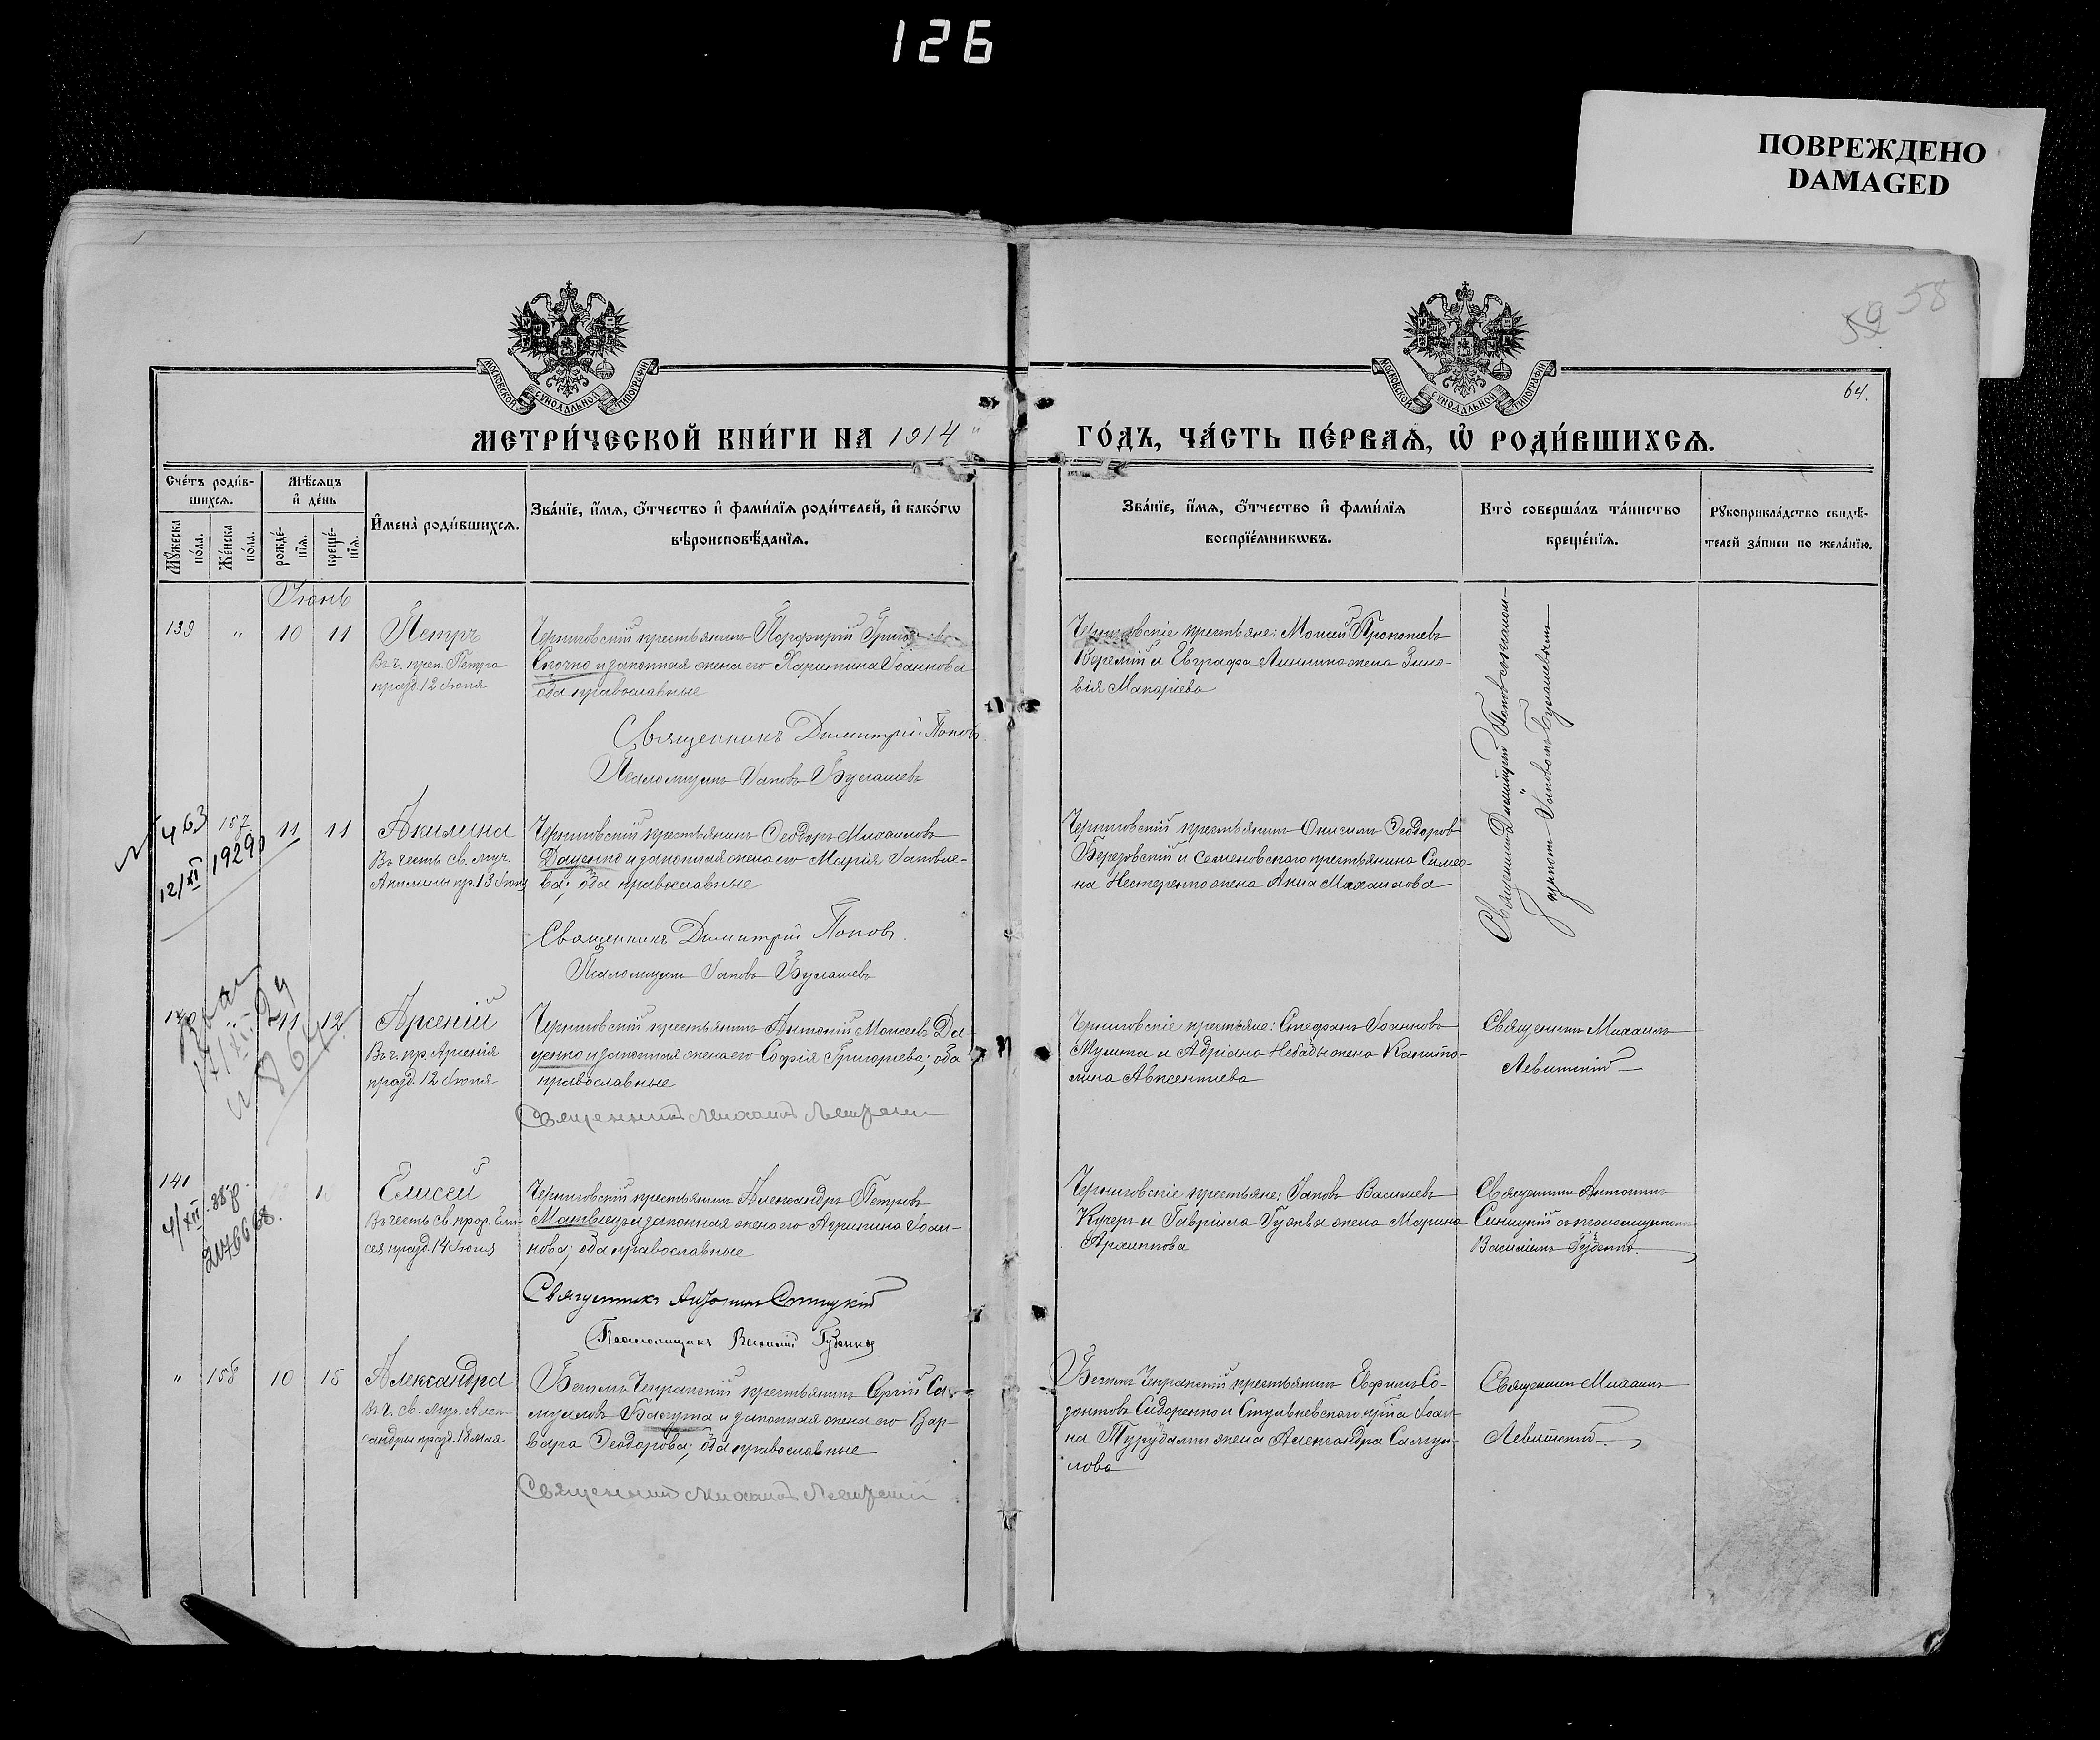 126
ПОВРЕЖДЕНО
DAMAGED
59 58
64.
МОСКОВСКОЙ СѴНОДАЛЬНОЙ ТИПОГРАФІИ
МОСКОВСКОЙ СѴНОДАЛЬНОЙ ТИПОГРАФІИ
МЕТРИ́ЧЕСКОЙ КНИ́ГИ НА 1914
ГО́ДЪ, ЧА́СТЬ ПЕ́РВАѦ, Ѡ҆ РОДИ́ВШИХСѦ.
Сче́тъ роди́в-
шихсѧ.
Мѹ́жеска по́ла.
Же́нска по́ла.
Мѣ́сѧцъ
и҆ де́нь
рожде́-
нїѧ.
креще́-
нїѧ.
И҆мена̀ роди́вшихсѧ.
Зва́нїе, и҆́мѧ, ѻ҆́тчество и҆ фами́лїѧ роди́телей, и҆ како́гѡ
вѣроисповѣ́данїѧ.
Зва́нїе, и҆́мѧ, ѻ҆́тчество и҆ фами́лїѧ
воспрїе́мникѡвъ.
Кто̀ соверша́лъ та́инство
креще́нїѧ.
Рѹкоприкла́дство свидѣ́-
телей за́писи по жела́нїю.
Іюнь
139 " 10 11
Петръ
Въ ч. преп. Петра
празд. 12 Іюня
Черниговскій крестьянинъ Порфирій
и законная жена его Харитина Іоаннова
оба православные
Священникъ Димитрій Попов
Псаломщикъ Іаковъ Буглашевъ
крестьяне: Моисей Прокопіевъ
Веремій и Евграфа жена Зино-
вія Макаріева
Священникъ Димитрій Поповъ съ псалом-
щикомъ Іаковомъ Буглашевымъ
N 463 157 11 11
12/XI 1929
Акилина
Въ честь св. муч.
Акилины пр. 13 Іюня
Черниговскій крестьянинъ Ѳеодоръ Михаиловъ
Даценко и законная жена его Марія Іаковле-
ва; оба православные
Священникъ Димитрій Поповъ.
Псаломщикъ Іаковъ Буглашевъ
Черниговскій крестьянинъ Онисимъ Ѳеодоровъ
Березовскій и Семеновскаго крестьянина Симео-
на Нестеренко жена Анна Михаилова
140 " 11 12
Арсеній
Въ ч. пр. Арсенія
празд. 12 Іюня
Черниговскій крестьянинъ Антоній Моисеевъ Да-
ценко и законная жена его Софія Григоріева; оба
православные
Священникъ Михаилъ Левитскій
Черниговскіе крестьяне: Стефанъ Іоанновъ
Мушта и Адріана Небабы жена Капито-
лина Авксентіева
Священникъ Михаилъ
Левитскій
141
4/XII
Елисей
Въ честь св. прор. Ели-
сея празд. 14 Іюня
Черниговскій крестьянинъ Александръ Петровъ
Матвіецъ и законная жена его Агрипина Іоан-
нова; оба православные
Священникъ Антонин Синицкій
Псаломщикъ Василій Губенко
Черниговскіе крестьяне: Іаковъ Василіевъ
Кучеръ и Гавріила жена Марина
Архиппова
Священникъ Антонинъ
Синицкій съ псаломщикомъ
Василіемъ Губенко.
" 158 10 15
Александра
Въ ч. св. муч. Алек-
сандры празд. 18 мая
крестьянинъ Сергій Са-
муиловъ и законная жена его Вар-
вара Ѳеодорова; оба православные
Священникъ Михаилъ Левитскій
крестьянинъ Евфимъ Со-
зонтовъ Сидоренко и Стульневскаго кр-на Іоан-
на жена Александра Самуи-
лова
Священникъ Михаилъ
Левитскій